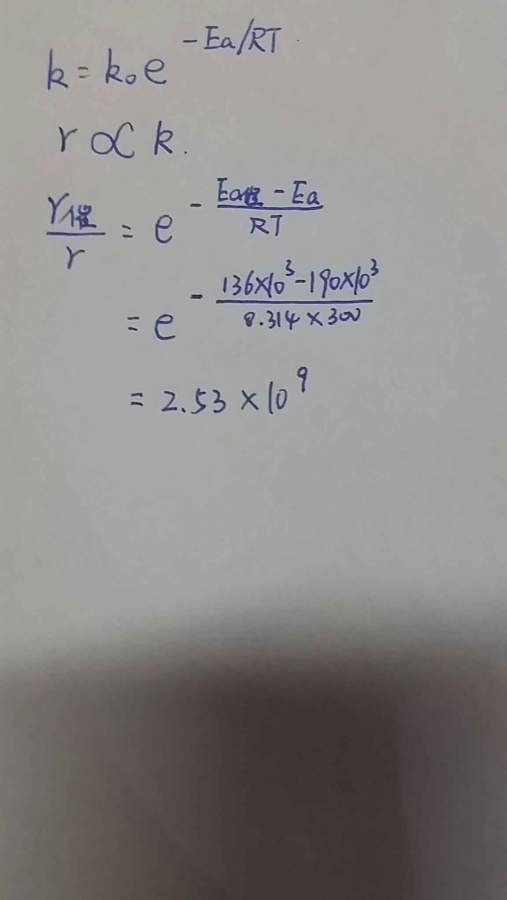 k = k₀e^(-Ea/RT)
r ∝ k.
r催/r = e^(-(Ea催 - Ea)/RT)
= e^(-(136×10³-190×10³)/(8.314×300))
= 2.53×10⁹